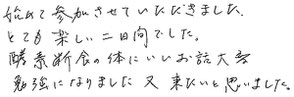 始めて参加させていただきました、
とても楽しい二日間でした。
酵素断食の体にいいお話大変
勉強になりました 又来たいと思いました。